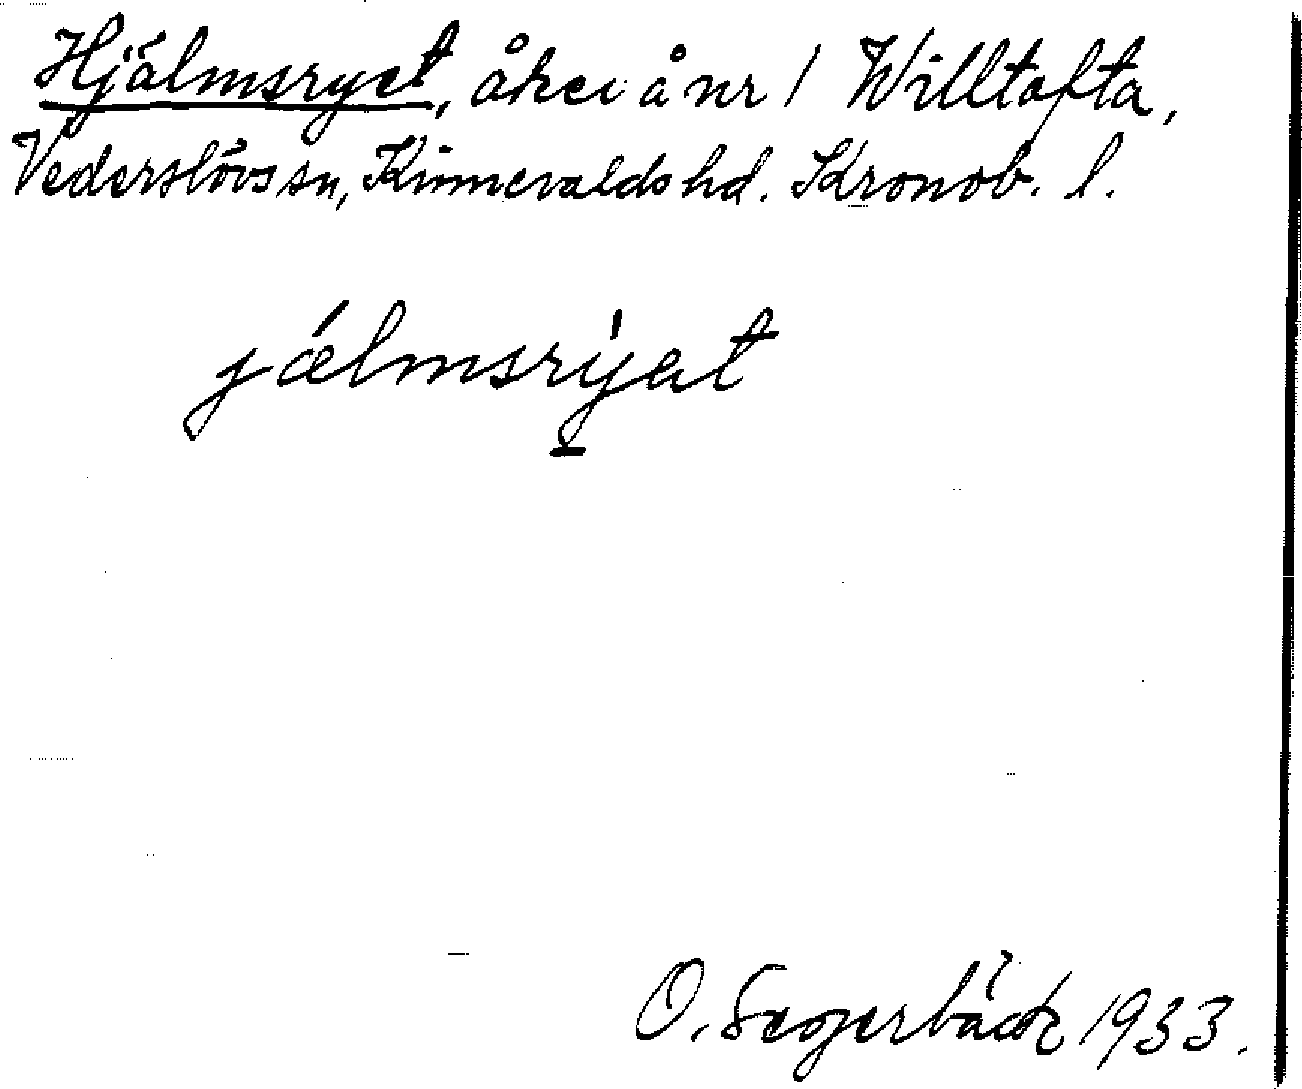 Hjälmsryet, åker å nr 1 Willtofta,
Vederslövs sn, Kinnevalds hd. Kronob. l.
jælmsrýat
O. Segerbäck 1933.